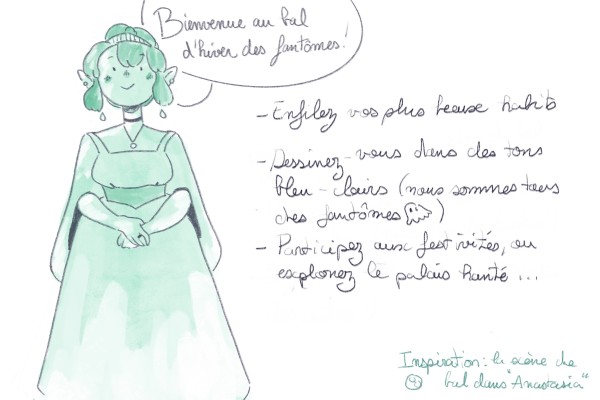 Bienvenue au bal
d'hiver des fantômes!
- Enfilez vos plus beaux habits
- Dessinez-vous dans des tons
bleu-clairs (nous sommes tous
des fantômes)
- Participez aux festivités, ou
explorez le palais hanté ...
Inspiration: la scène de
bal dans "Anastasia"